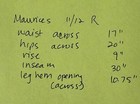 Maurices 11/12 R
waist across 17"
hips across 20"
rise 9"
inseam 30"
leg hem opening 10.75"
(across)